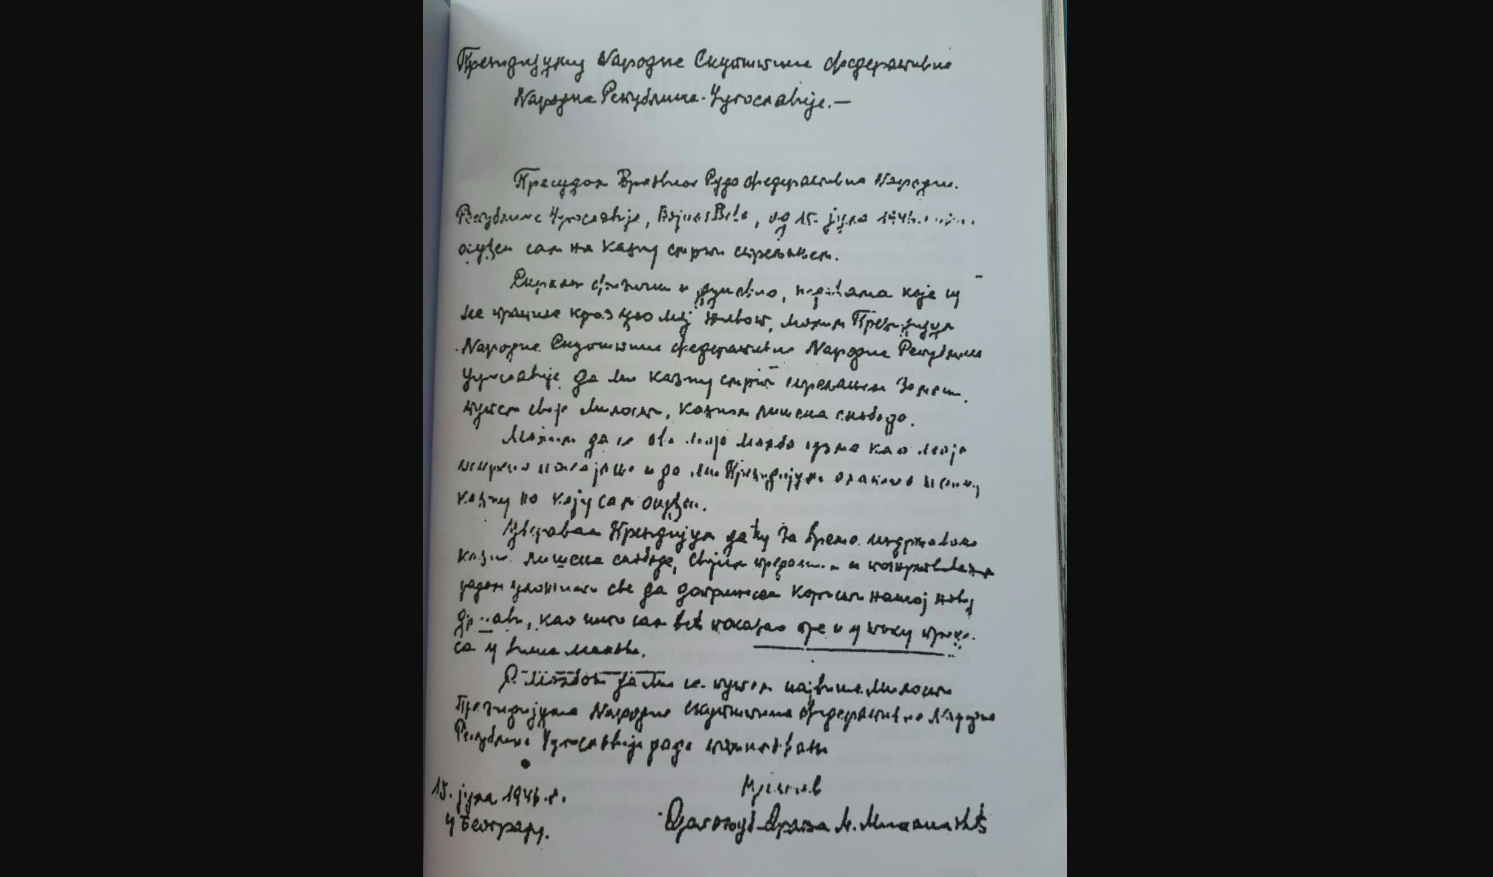 Президијуму Народне Скупштине Федеративне
Народне Републике Југославије.—
Пресудом Врховног Суда Федеративне Народне
Републике Југославије, од 15. јула 1946.
осуђен сам на казну смрти стрељањем.
физички и душевно, која су
ме пратила кроз цео мој живот, молим Президијум
Народне Скупштине Федеративне Народне Републике
Југославије да ми казну смрти стрељањем замени,
путем своје милости, казном лишења слободе.
Молим да се ова моја молба сматра као моје
искрено и да ми Президијум
казну на коју сам осуђен.
Уверавам Президијум да ћу за време издржавања
казне лишења слободе, својим и
радом уложити све да допринесем користи нашој новој
држави, као што сам већ показао пре и у току
са
С молбом да ми се путем највише милости
Президијума Народне Скупштине Федеративне Народне
Републике Југославије ради
15. јула 1946. г.
у Београду.
Драгољуб-Дража М. Михаиловић